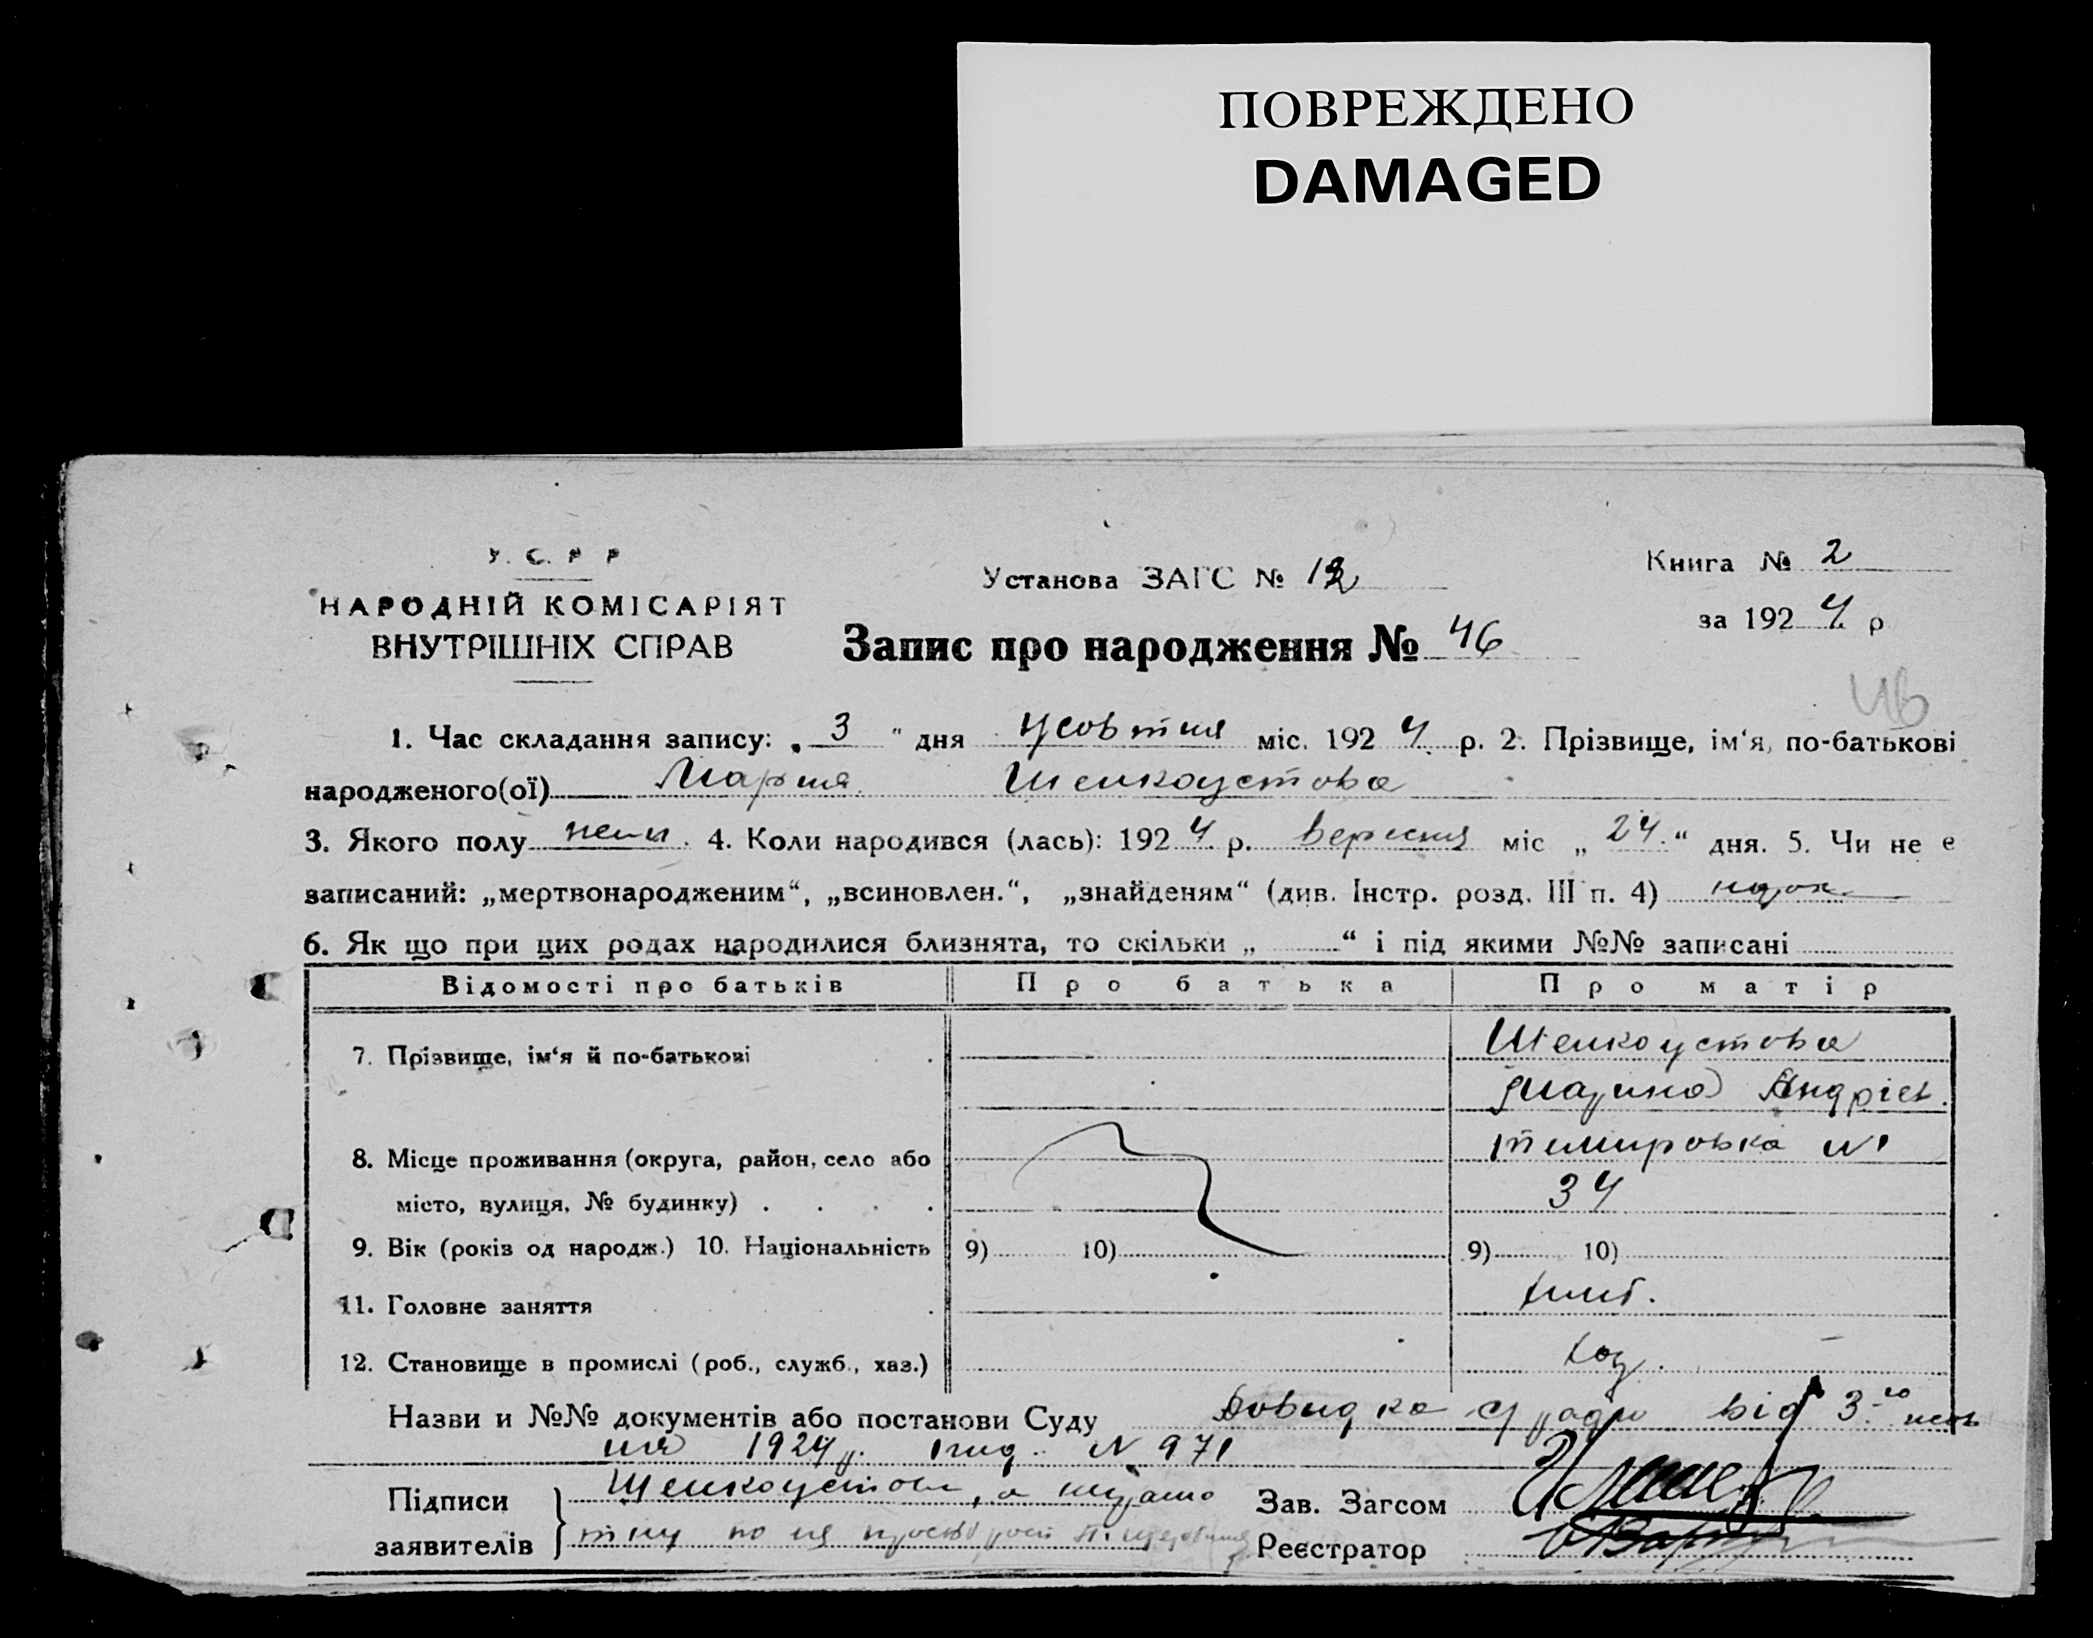 ПОВРЕЖДЕНО
DAMAGED
У. С. Р. Р
НАРОДНІЙ КОМІСАРІЯТ
ВНУТРІШНІХ СПРАВ
Установа ЗАГС № 12
Книга № 2
за 1924 р
Запис про народження № 46
46
1. Час складання запису: „ 3 " дня жовтня міс. 1924 р. 2. Прізвище, ім'я, по-батькові
народженого(ої) Мария Шелкоустова
3. Якого полу жен. 4. Коли народився (лась): 1924 р. вересня міс „ 24 " дня. 5. Чи не е
записаний: „мертвонародженим", „всиновлен.", „знайденям" (див. Інстр. розд. III п. 4)
6. Як що при цих родах народилися близнята, то скільки „ " і під якими №№ записані
Відомості про батьків Про батька Про матір
7. Прізвище, ім'я й по-батькові Шелкоустова
Марина Андріев.
8. Місце проживання (округа, район, село або Темировка №
місто, вулиця, № будинку) . . . . 34
9. Вік (років од народж.) 10. Національність 9) 10) 9) 10)
11. Головне заняття хліб.
12. Становище в промислі (роб., служб., хаз.) хоз.
Назви и №№ документів або постанови Суду Довидка с/ради від 3-го жовт
ня 1924 р. № 971
Підписи Шелкоустова, а неграмо
заявителів тну по ея просьбі рост.
Зав. Загсом
Реєстратор